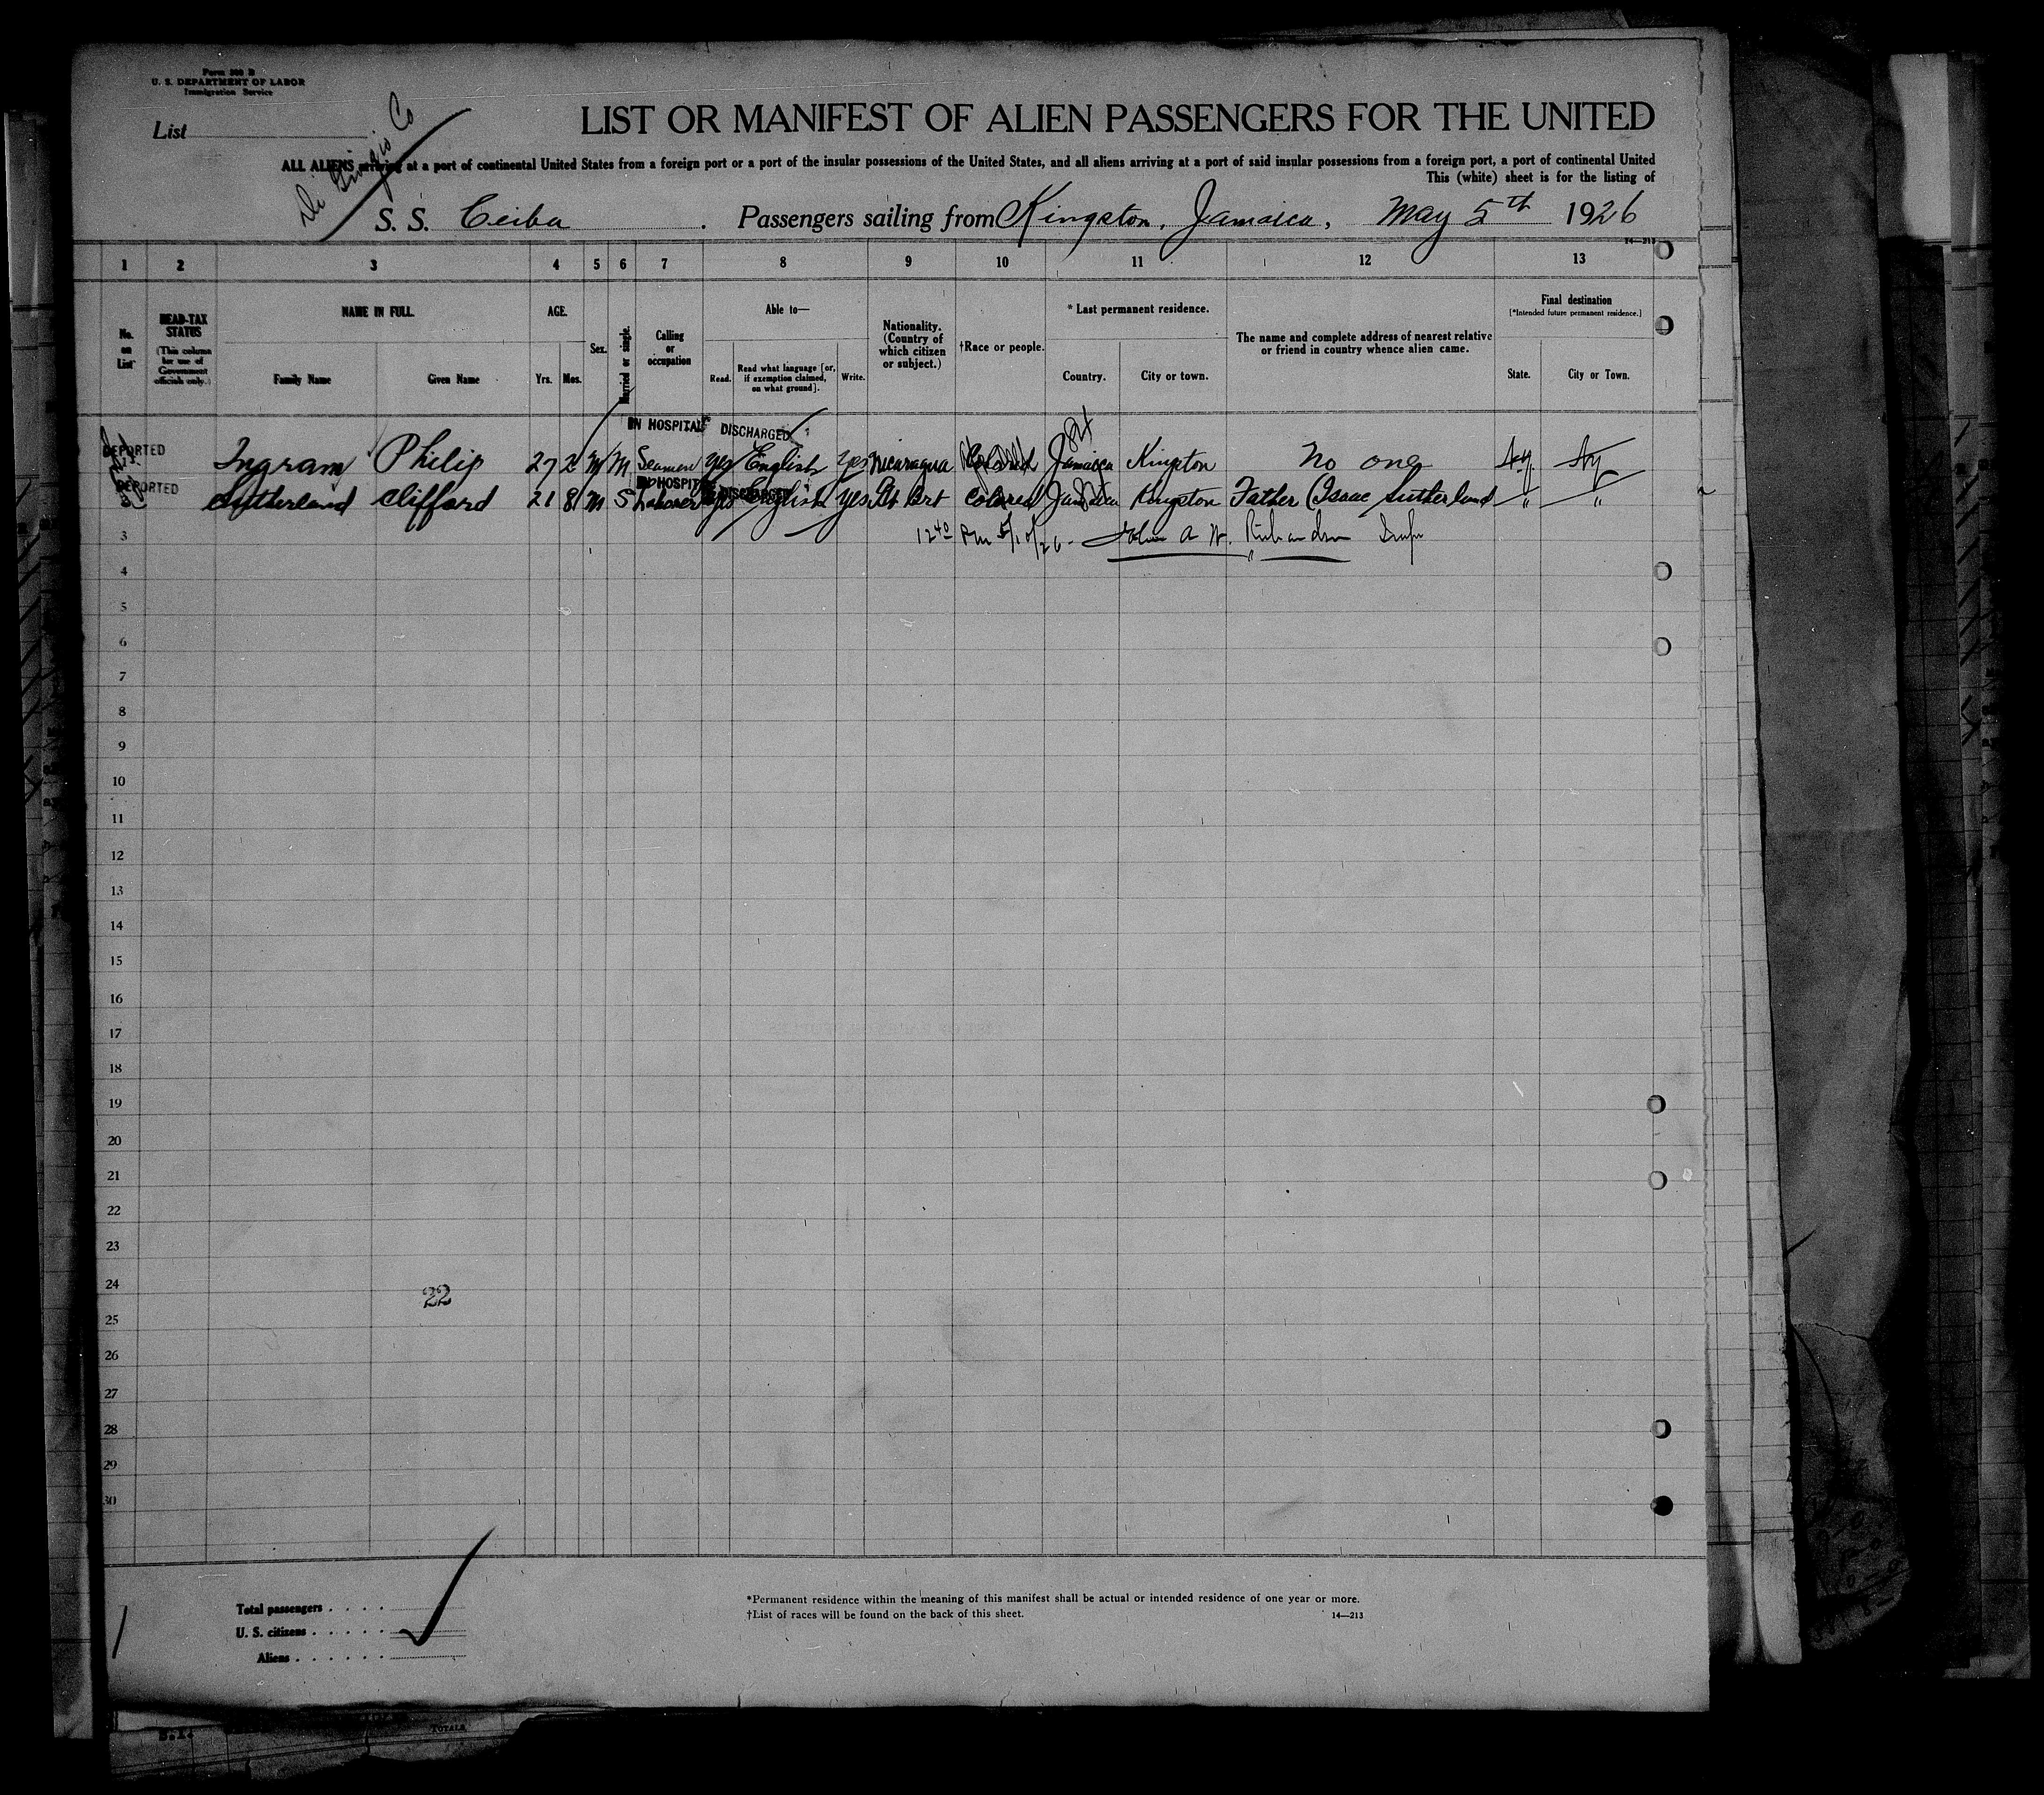 Form 500 B
U. S. DEPARTMENT OF LABOR
Immigration Service
List
Di Giorgio Co
LIST OR MANIFEST OF ALIEN PASSENGERS FOR THE UNITED
ALL ALIENS arriving at a port of continental United States from a foreign port or a port of the insular possessions of the United States, and all aliens arriving at a port of said insular possessions from a foreign port, a port of continental United
This (white) sheet is for the listing of
S. S. Ceiba . Passengers sailing from Kingston, Jamaica, May 5th 1926
14—213
1 2 3 4 5 6 7 8 9 10 11 12 13
No. on List
HEAD-TAX STATUS
(This column for use of Government officials only.)
NAME IN FULL.
Family Name Given Name
AGE.
Yrs. Mos.
Sex.
Married or single.
Calling or occupation
Able to—
Read. Read what language [or, if exemption claimed, on what ground]. Write.
Nationality. (Country of which citizen or subject.)
†Race or people.
* Last permanent residence.
Country. City or town.
The name and complete address of nearest relative or friend in country whence alien came.
Final destination
[*Intended future permanent residence.]
State. City or Town.
IN HOSPITAL DISCHARGED
DEPORTED Ingram Philip 27 2 M M Seaman yes English yes Nicaragua Colored Jamaica Kingston No one N.y. Ny
IN HOSPITAL DISCHARGED
DEPORTED Sutherland Clifford 21 8 M S Laborer yes English yes Colored Jamaica Kingston Father (Isaac Sutherland " "
3 12 40 Pm 5/10/26 - John A W. Richardson Insp
4
5
6
7
8
9
10
11
12
13
14
15
16
17
18
19
20
21
22
23
24
22
25
26
27
28
29
30
Total passengers . . . .
U. S. citizens . . . . .
Aliens . . . . . .
*Permanent residence within the meaning of this manifest shall be actual or intended residence of one year or more.
†List of races will be found on the back of this sheet.
14—213
TOTALS